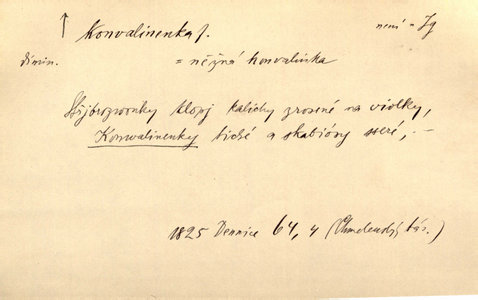 ↑ Konvalinenka f. není = Jg
dimin. = něžná konvalinka
klopj kalichy zrosené na violky,
Konwalinenky tiché a skabiózy steré, –
1825 Dennice 64, 4 (Chmelenský bás.)